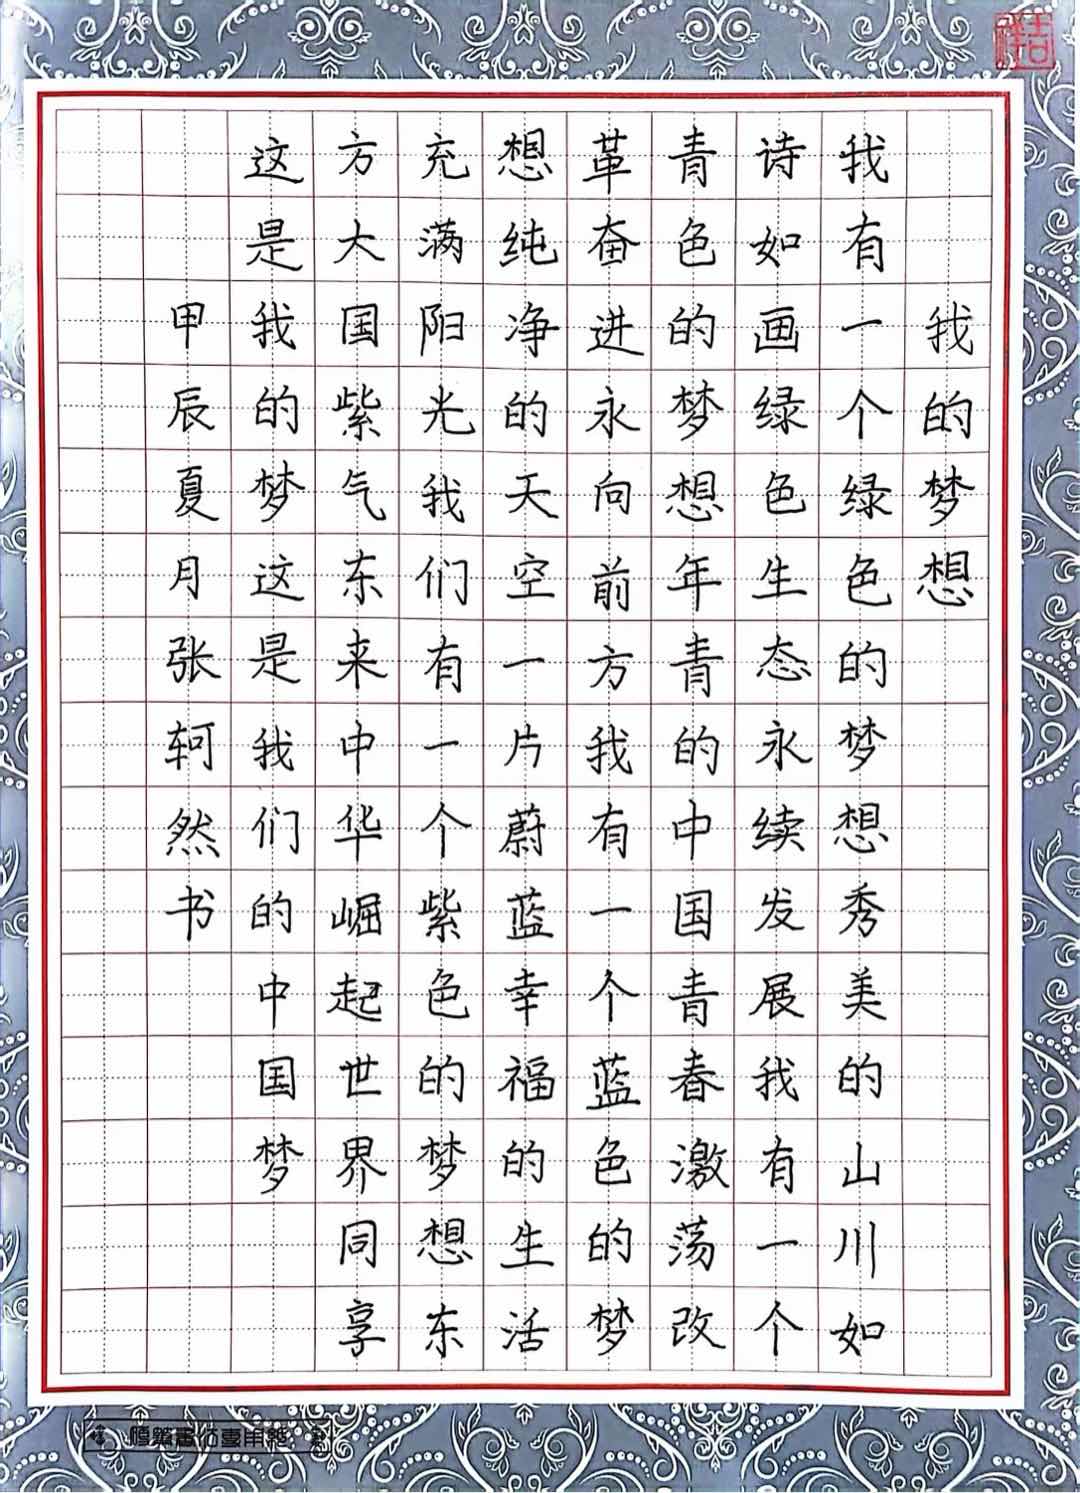 我的梦想
我有一个绿色的梦想秀美的山川如
诗如画绿色生态永续发展我有一个
青色的梦想年青的中国青春激荡改
革奋进永向前方我有一个蓝色的梦
想纯净的天空一片蔚蓝幸福的生活
充满阳光我们有一个紫色的梦想东
方大国紫气东来中华崛起世界同享
这是我的梦这是我们的中国梦
甲辰夏月张轲然书